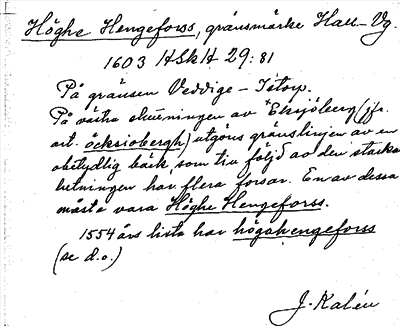 Höghe Hengeforss, gränsmärke Hall-Vg.
1603 HSkH 29:81
På gränsen Veddige - Istorp.
På västra sluttningen av *Eksjöberg (jfr.
art. öcksiobergh) utgöres gränslinjen av en
obetydlig bäck, som till följd av den starka
lutningen har flera forsar. En av dessa
måste vara Höghe Hengeforss.
1554 års lista har högahengeforss
(se d.o.)
J. Kalén